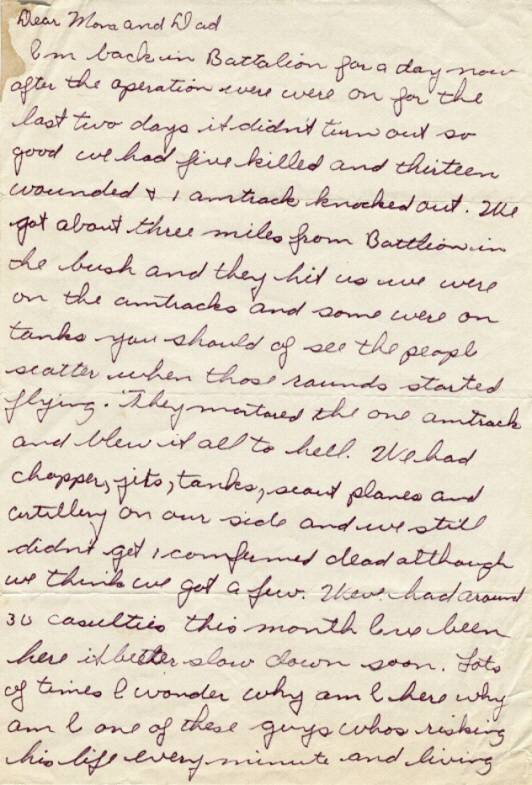 Dear Mom and Dad
I'm back in Battalion for a day now
after the operation were were on for the
last two days it didn't turn out so
good we had five killed and thirteen
wounded & 1 amtrack knocked out. We
got about three miles from Battlion in
the bush and they hit us we were
on the amtracks and some were on
tanks you should of see the people
scatter when those rounds started
flying. They mortared the one amtrack
and blew it all to hell. We had
chopper, jits, tanks, scout planes and
artillery on our side and we still
didn't get 1 comfirmed dead although
we think we got a few. Weve had around
30 casulties this month Ive been
here it better slow down soon. Lots
of times I wonder why am I here why
am I one of these guys whos risking
his life every minute and living